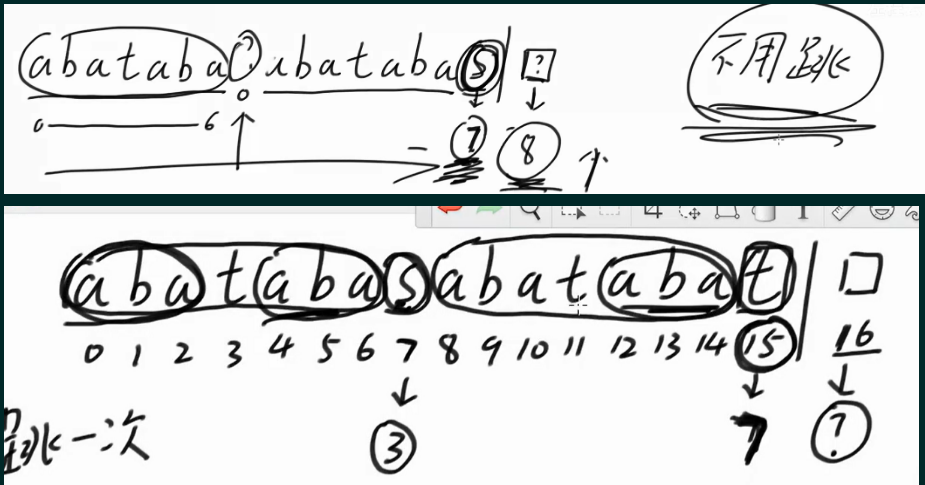 abataba?abatabas ?
不用跳
0 0 6
7 8 个
abatabasabatabat
0 1 2 3 4 5 6 7 8 9 10 11 12 13 14 15 16
跳一次 3 7 ?